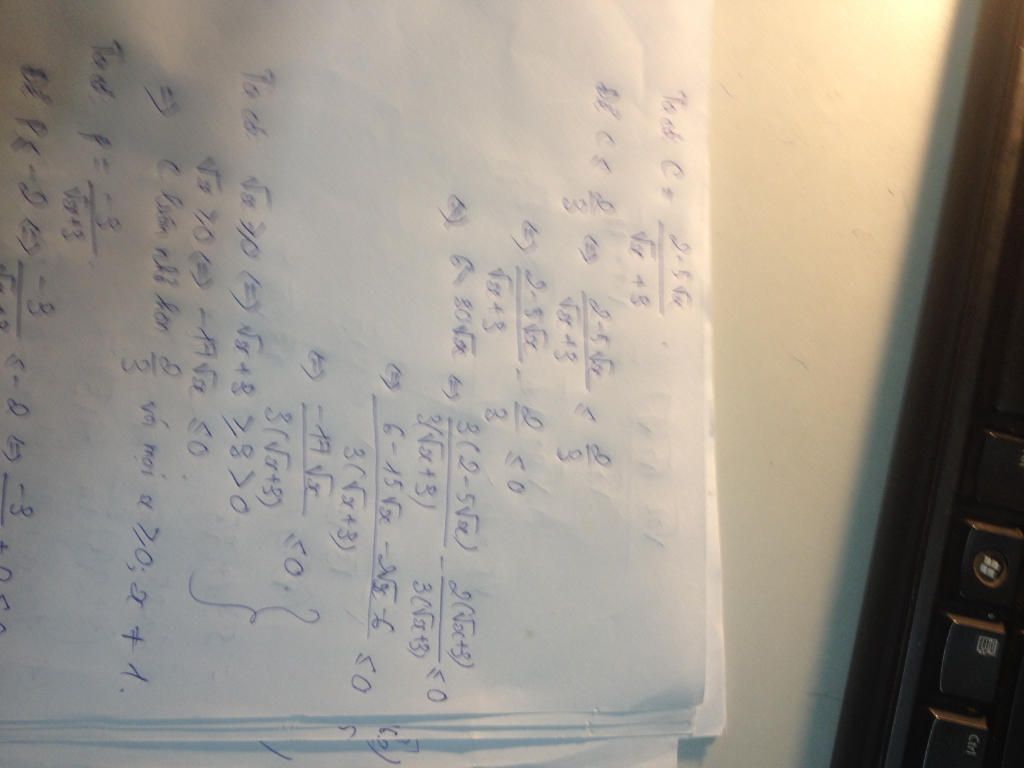 Ta có C = \frac{2-5\sqrt{x}}{\sqrt{x}+3}
Để C ≤ \frac{2}{3} ⇔ \frac{2-5\sqrt{x}}{\sqrt{x}+3} ≤ \frac{2}{3}
⇔ \frac{2-5\sqrt{x}}{\sqrt{x}+3} - \frac{2}{3} ≤ 0
⇔ \frac{3(2-5\sqrt{x})}{3(\sqrt{x}+3)} - \frac{2(\sqrt{x}+3)}{3(\sqrt{x}+3)} ≤ 0
⇔ \frac{6-15\sqrt{x}-2\sqrt{x}-6}{3(\sqrt{x}+3)} ≤ 0
⇔ \frac{-17\sqrt{x}}{3(\sqrt{x}+3)} ≤ 0.
Ta có \sqrt{x} ≥ 0 ⇔ \sqrt{x}+3 ≥ 3 > 0
\sqrt{x} ≥ 0 ⇔ -17\sqrt{x} ≤ 0
⇒ C luôn nhỏ hơn \frac{2}{3} với mọi x ≥ 0; x ≠ 1.
Ta có P = \frac{-3}{\sqrt{x}+3}
Để P ≤ -2 ⇔ \frac{-3}{\sqrt{x}+3} ≤ -2 ⇔
Ctrl